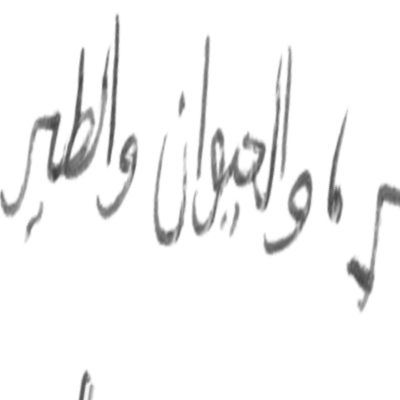 والحيوان والطير